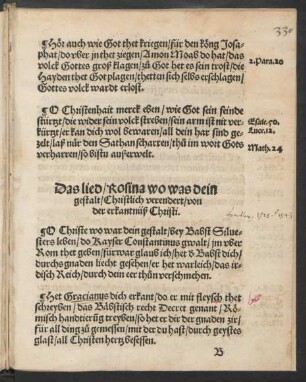 330
¶Hör auch wie Got thet kriegen/für den köng Josa-
phat/do vber jn thet ziehen/Amon Moab do hat/das
volck Gottes groß klagen/zů Got her es sein trost/die
Hayden thet Got plagen/thetten sich selbs erschlagen/
Gottes volck wardt erlost.
2. Para. 20
¶O Christenhait merck eben/wie Got sein feinde
stürtzt/die wider sein volck streben/sein arm ist nit ver-
kürtzt/er kan dich wol bewaren/all dein har sind ge-
zelt/laß nür den Sathan scharren/thů im wort Gots
verharren/so bistu außerwelt.
Esaie. 50.
Luce. 12.
Math. 24
Das lied/Rosina wo was dein
gestalt/Christlich verendert/von
der erkantnüß Christi.
¶O Christe wo war dein gestalt/bey Babst Silue-
sters leben/do Kayser Constantinus gwalt/jm vber
Rom thet geben/fürwar glaub ich/het ð Babst dich/
durchs gnaden liecht gesehen/er het warleich/das ir-
disch Reich/durch dein eer thůn verschmehen.
¶Het Gracianus dich erkant/do er mit fleysch thet
schreyben/das Bäbstisch recht Decret genant/Rö-
misch handtierüg treyben/so het er dir der gnaden zir/
für all ding zů gemessen/mit der du hast/durch geystes
glast/all Christen hertz besessen.
B